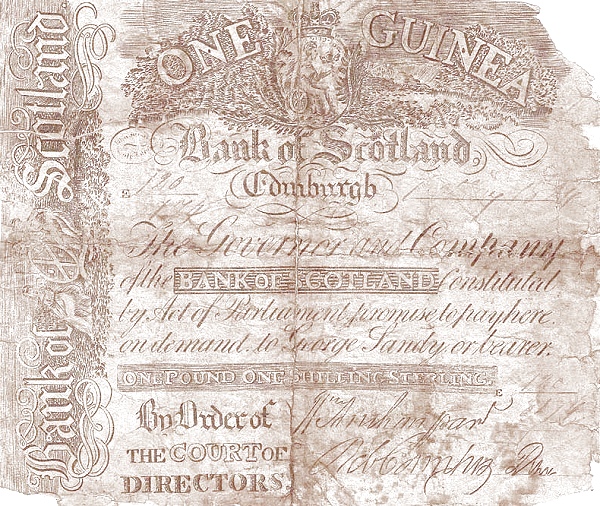 Bank of Scotland
ONE GUINEA
Bank of Scotland,
Edinburgh
The Governor and Company
of the BANK OF SCOTLAND Constituted
by Act of Parliament, promise to pay here,
on demand, to George Sandy or bearer,
ONE POUND ONE SHILLING STERLING.
By Order of
THE COURT OF
DIRECTORS.